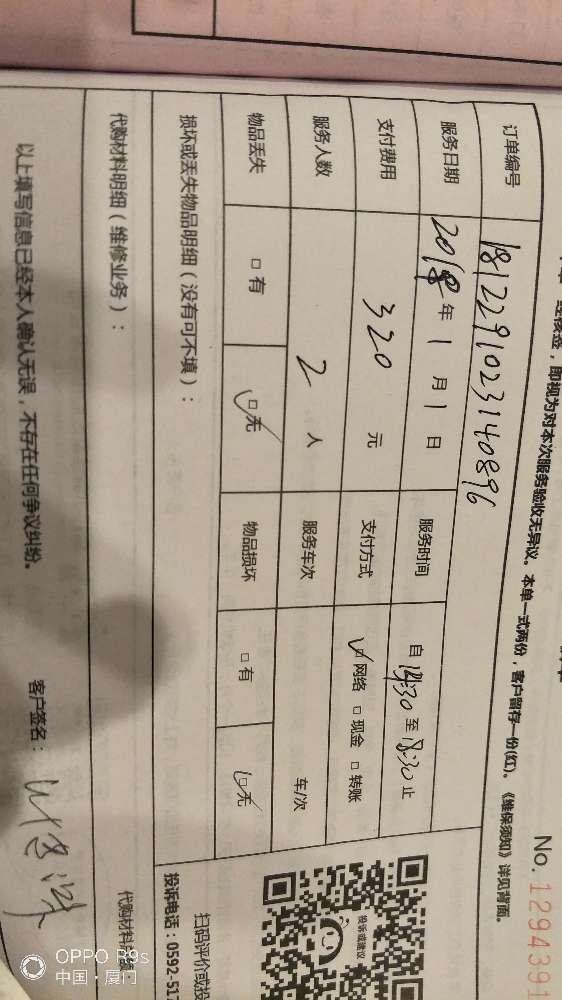 No. 1294391
经核签，即视为对本次服务验收无异议。本单一式两份，客户留存一份(红)。《维保须知》详见背面。
订单编号 1812291023140896
服务日期 2018年1月1日 服务时间 自14:30至18:30止
支付费用 320元 支付方式 ☑网络 □现金 □转账
服务人数 2人 服务车次 车/次
物品丢失 □有 ☑无 物品损坏 □有 ☑无
损坏或丢失物品明细（没有可不填）：
投诉或建议
扫码评价或投
投诉电话：0592-517
代购材料明细（维修业务）：
代购材料
以上填写信息已经本人确认无误，不存在任何争议纠纷。 客户签名：
OPPO R9s
中国·厦门